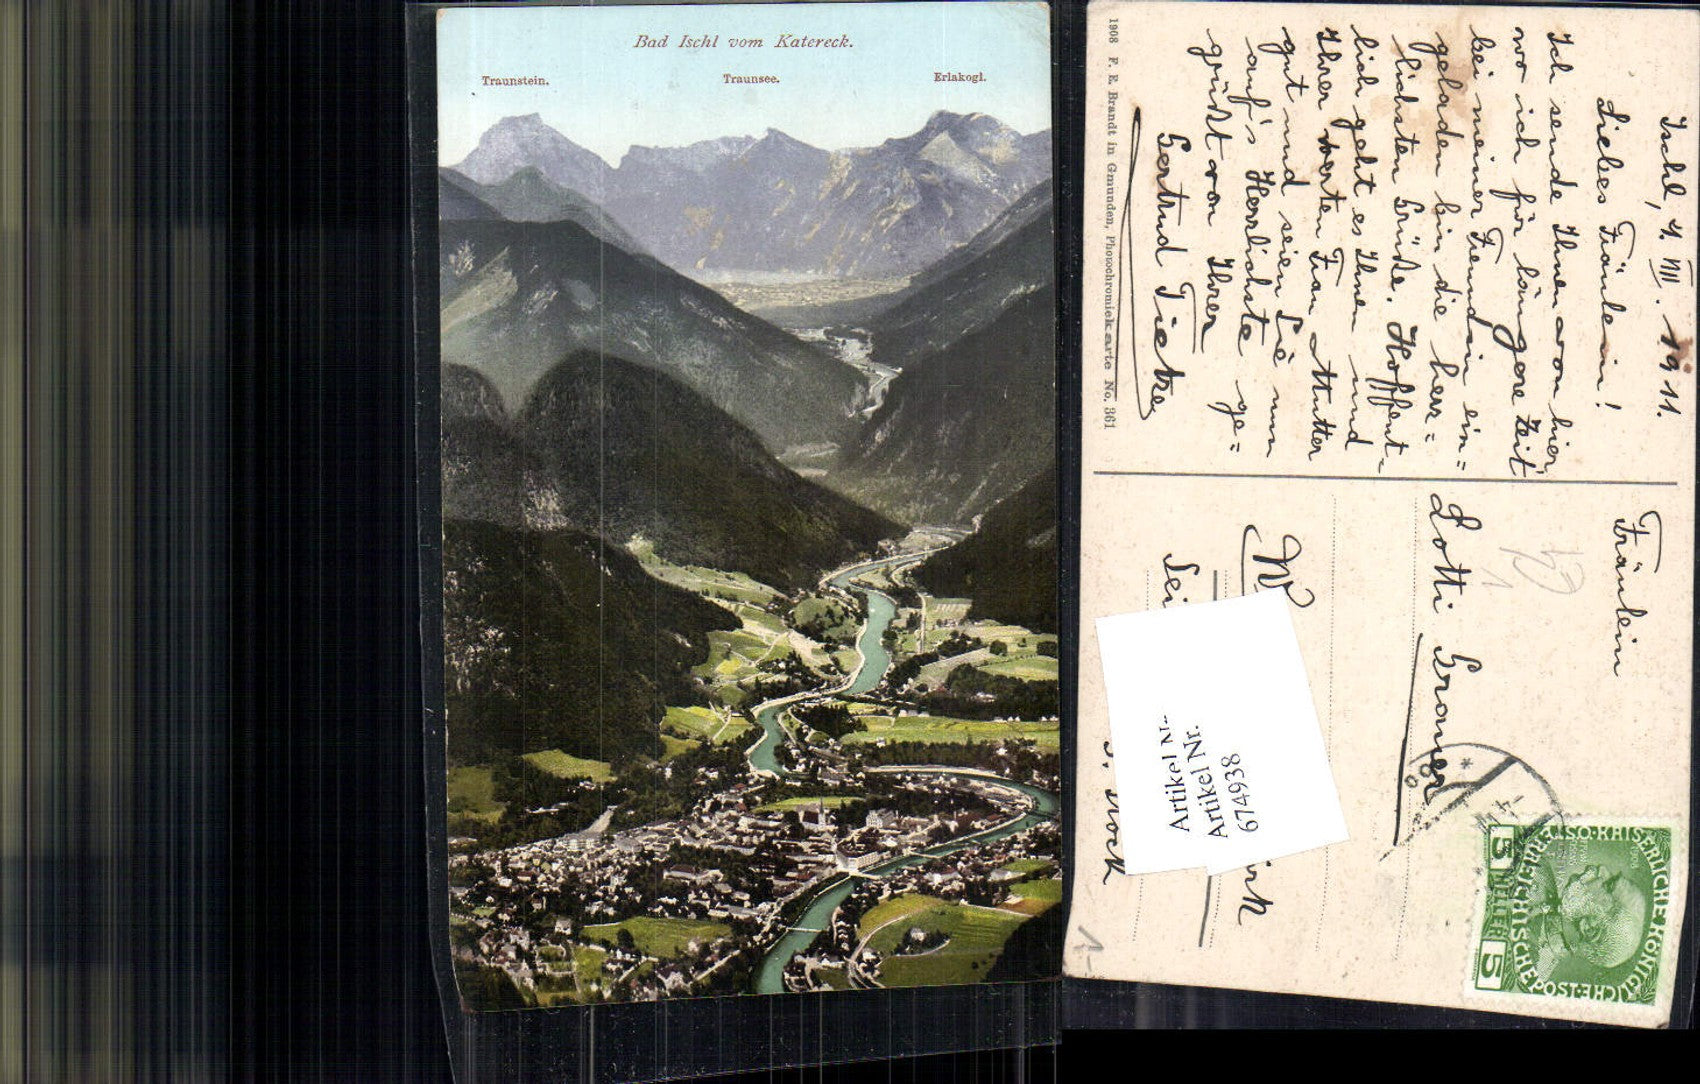 Bad Ischl vom Katereck.
Traunstein. Traunsee. Erlakogl.
1908 F. E. Brandt in Gmunden, Photochromiekarte No. 361
Ischl, 4. VIII. 1911.
Liebes Fräulein!
Ich sende Ihnen von hier,
wo ich für längere Zeit
bei meiner Freundin ein=
geladen bin die herz=
lichsten Grüße. Hoffent-
lich geht es Ihnen und
Ihrer werten Frau Mutter
gut und seien Sie nun
auf's Herzlichste ge=
grüßt von Ihrer
Gertrud Tietze
Fräulein
Lotti Gramer
W
irk
Sei
. Stock
Artikel Nr.
Artikel Nr.
674938
KAISERLICHE KÖNIGLICHE
ÖSTERREICHISCHE POST
5 HELLER 5
1-